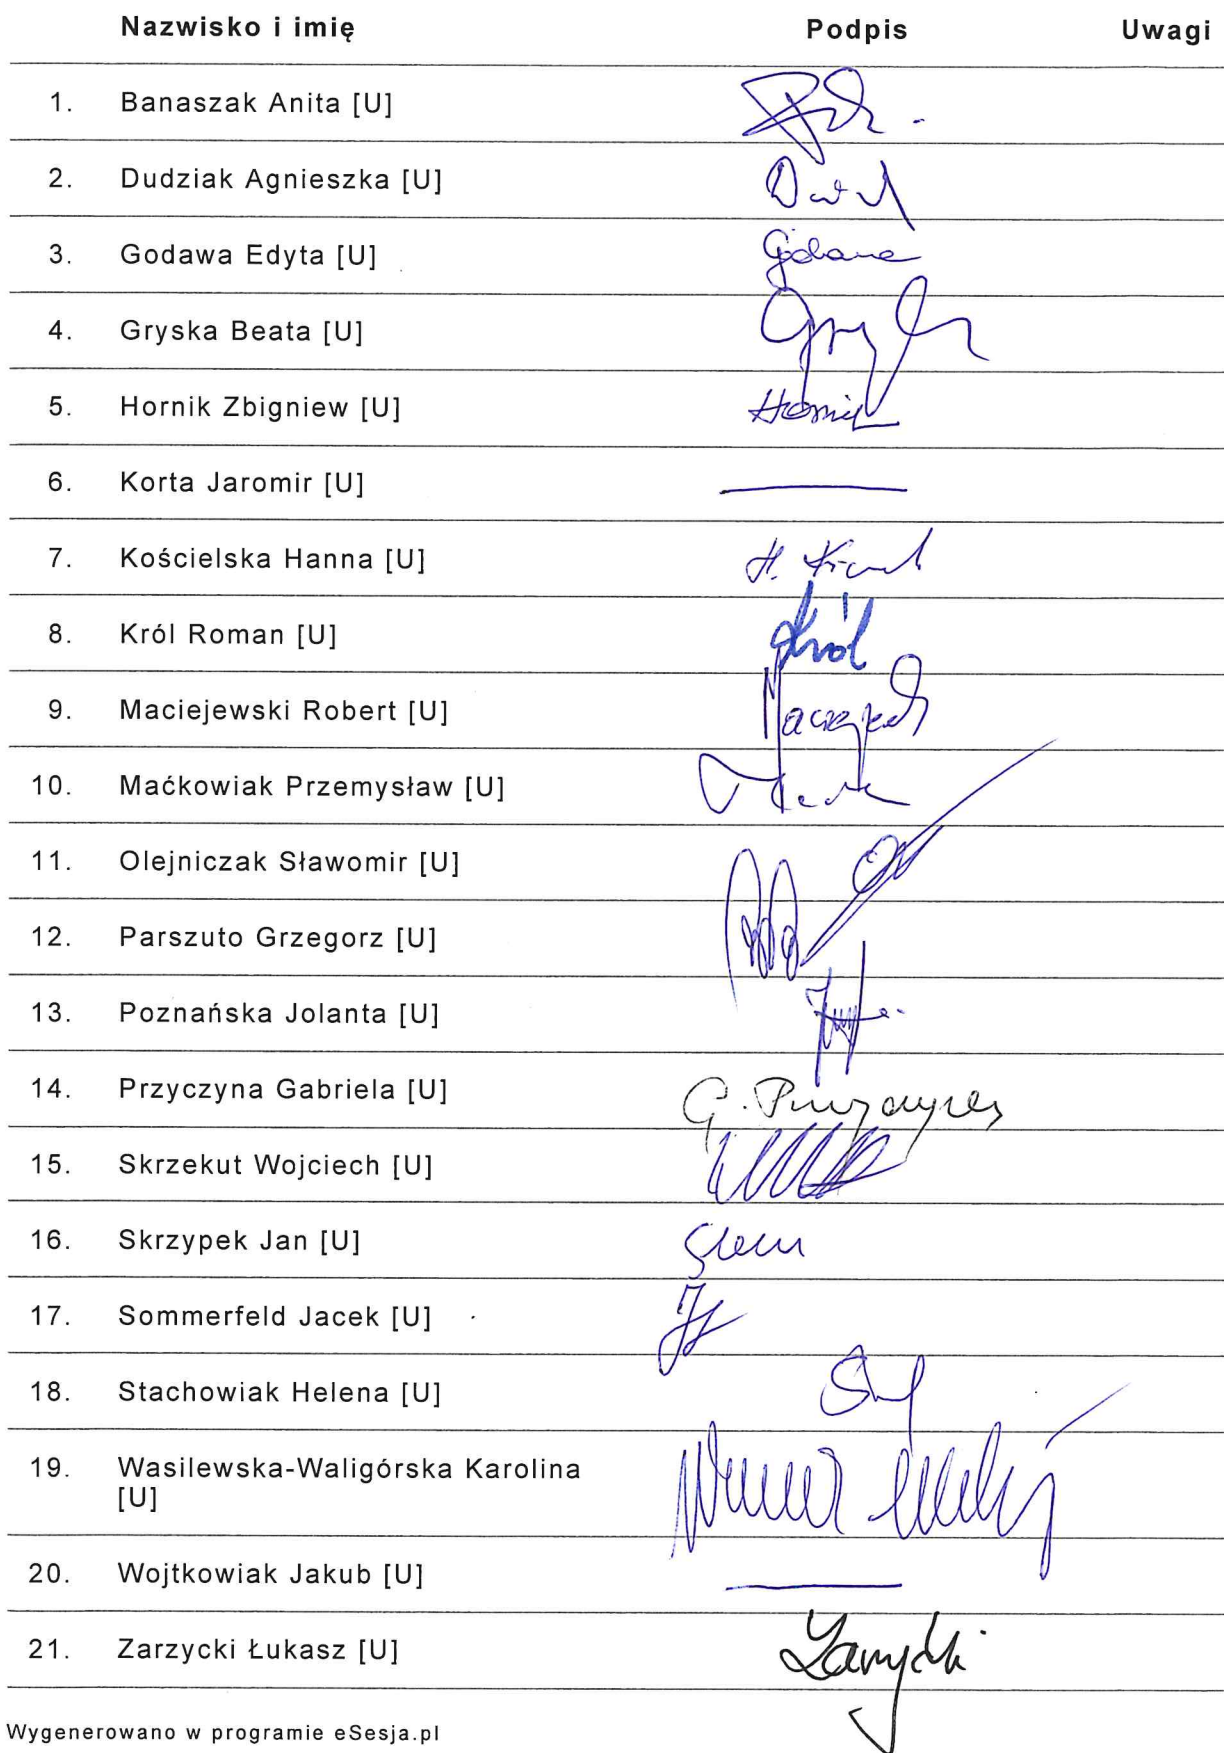 Nazwisko i imię Podpis Uwagi
1. Banaszak Anita [U]
2. Dudziak Agnieszka [U]
3. Godawa Edyta [U]
4. Gryska Beata [U]
5. Hornik Zbigniew [U] Hornik
6. Korta Jaromir [U]
7. Kościelska Hanna [U]
8. Król Roman [U] Król
9. Maciejewski Robert [U]
10. Maćkowiak Przemysław [U]
11. Olejniczak Sławomir [U]
12. Parszuto Grzegorz [U]
13. Poznańska Jolanta [U]
14. Przyczyna Gabriela [U] G. Przyczyna
15. Skrzekut Wojciech [U]
16. Skrzypek Jan [U]
17. Sommerfeld Jacek [U]
18. Stachowiak Helena [U]
19. Wasilewska-Waligórska Karolina
[U]
20. Wojtkowiak Jakub [U]
21. Zarzycki Łukasz [U] Zarzycki
Wygenerowano w programie eSesja.pl